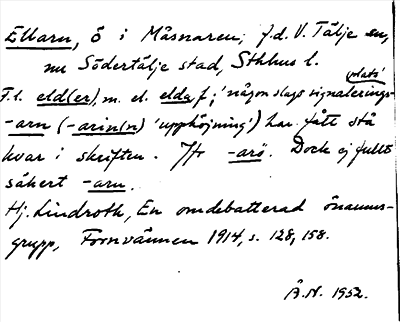 Ellarn, ö i Måsnaren, f.d. V. Tälje sn,
nu Södertälje stad, Sthlms l.
F.l. eld(er), m. el. elda f., 'någon slags signalerings-
plats'
-arn (-arin(n) 'upphöjning') har fått stå
kvar i skriften. Jfr -arö. Dock ej fullt
säkert -arn.
Hj. Lindroth, En omdebatterad önamns-
grupp, Fornvännen 1914, s. 128, 158.
Å.N. 1952.